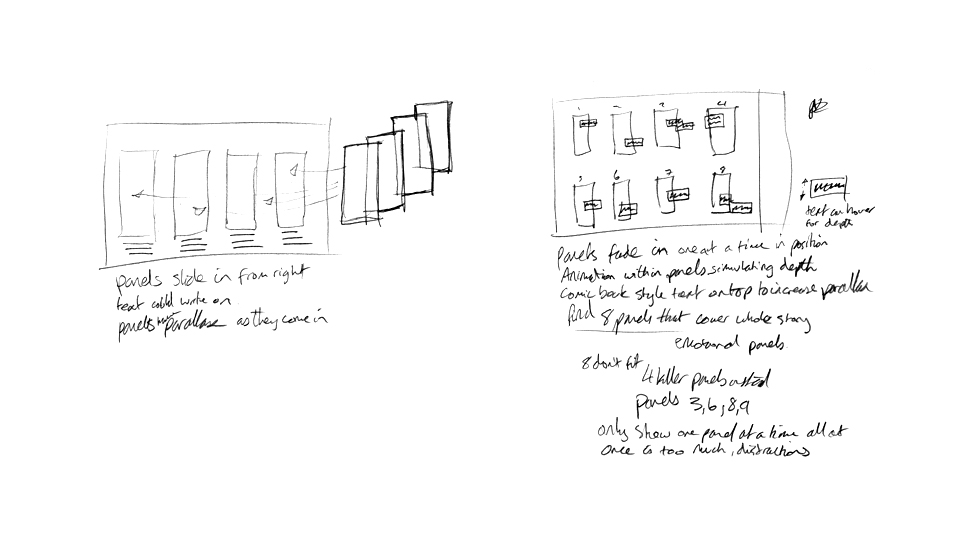 panels slide in from right
text could write on
panels parallax as they come in
1 2 3 4
5 6 7 8
text can hover
for depth
panels fade in one at a time in position
Animation within panels simulating depth
Comic book style text on top to increase parallax
find 8 panels that cover whole story
emotional panels.
8 don't fit
4 killer panels instead
panels 3,6,8,9
only show one panel at a time all at
once is too much, distractions